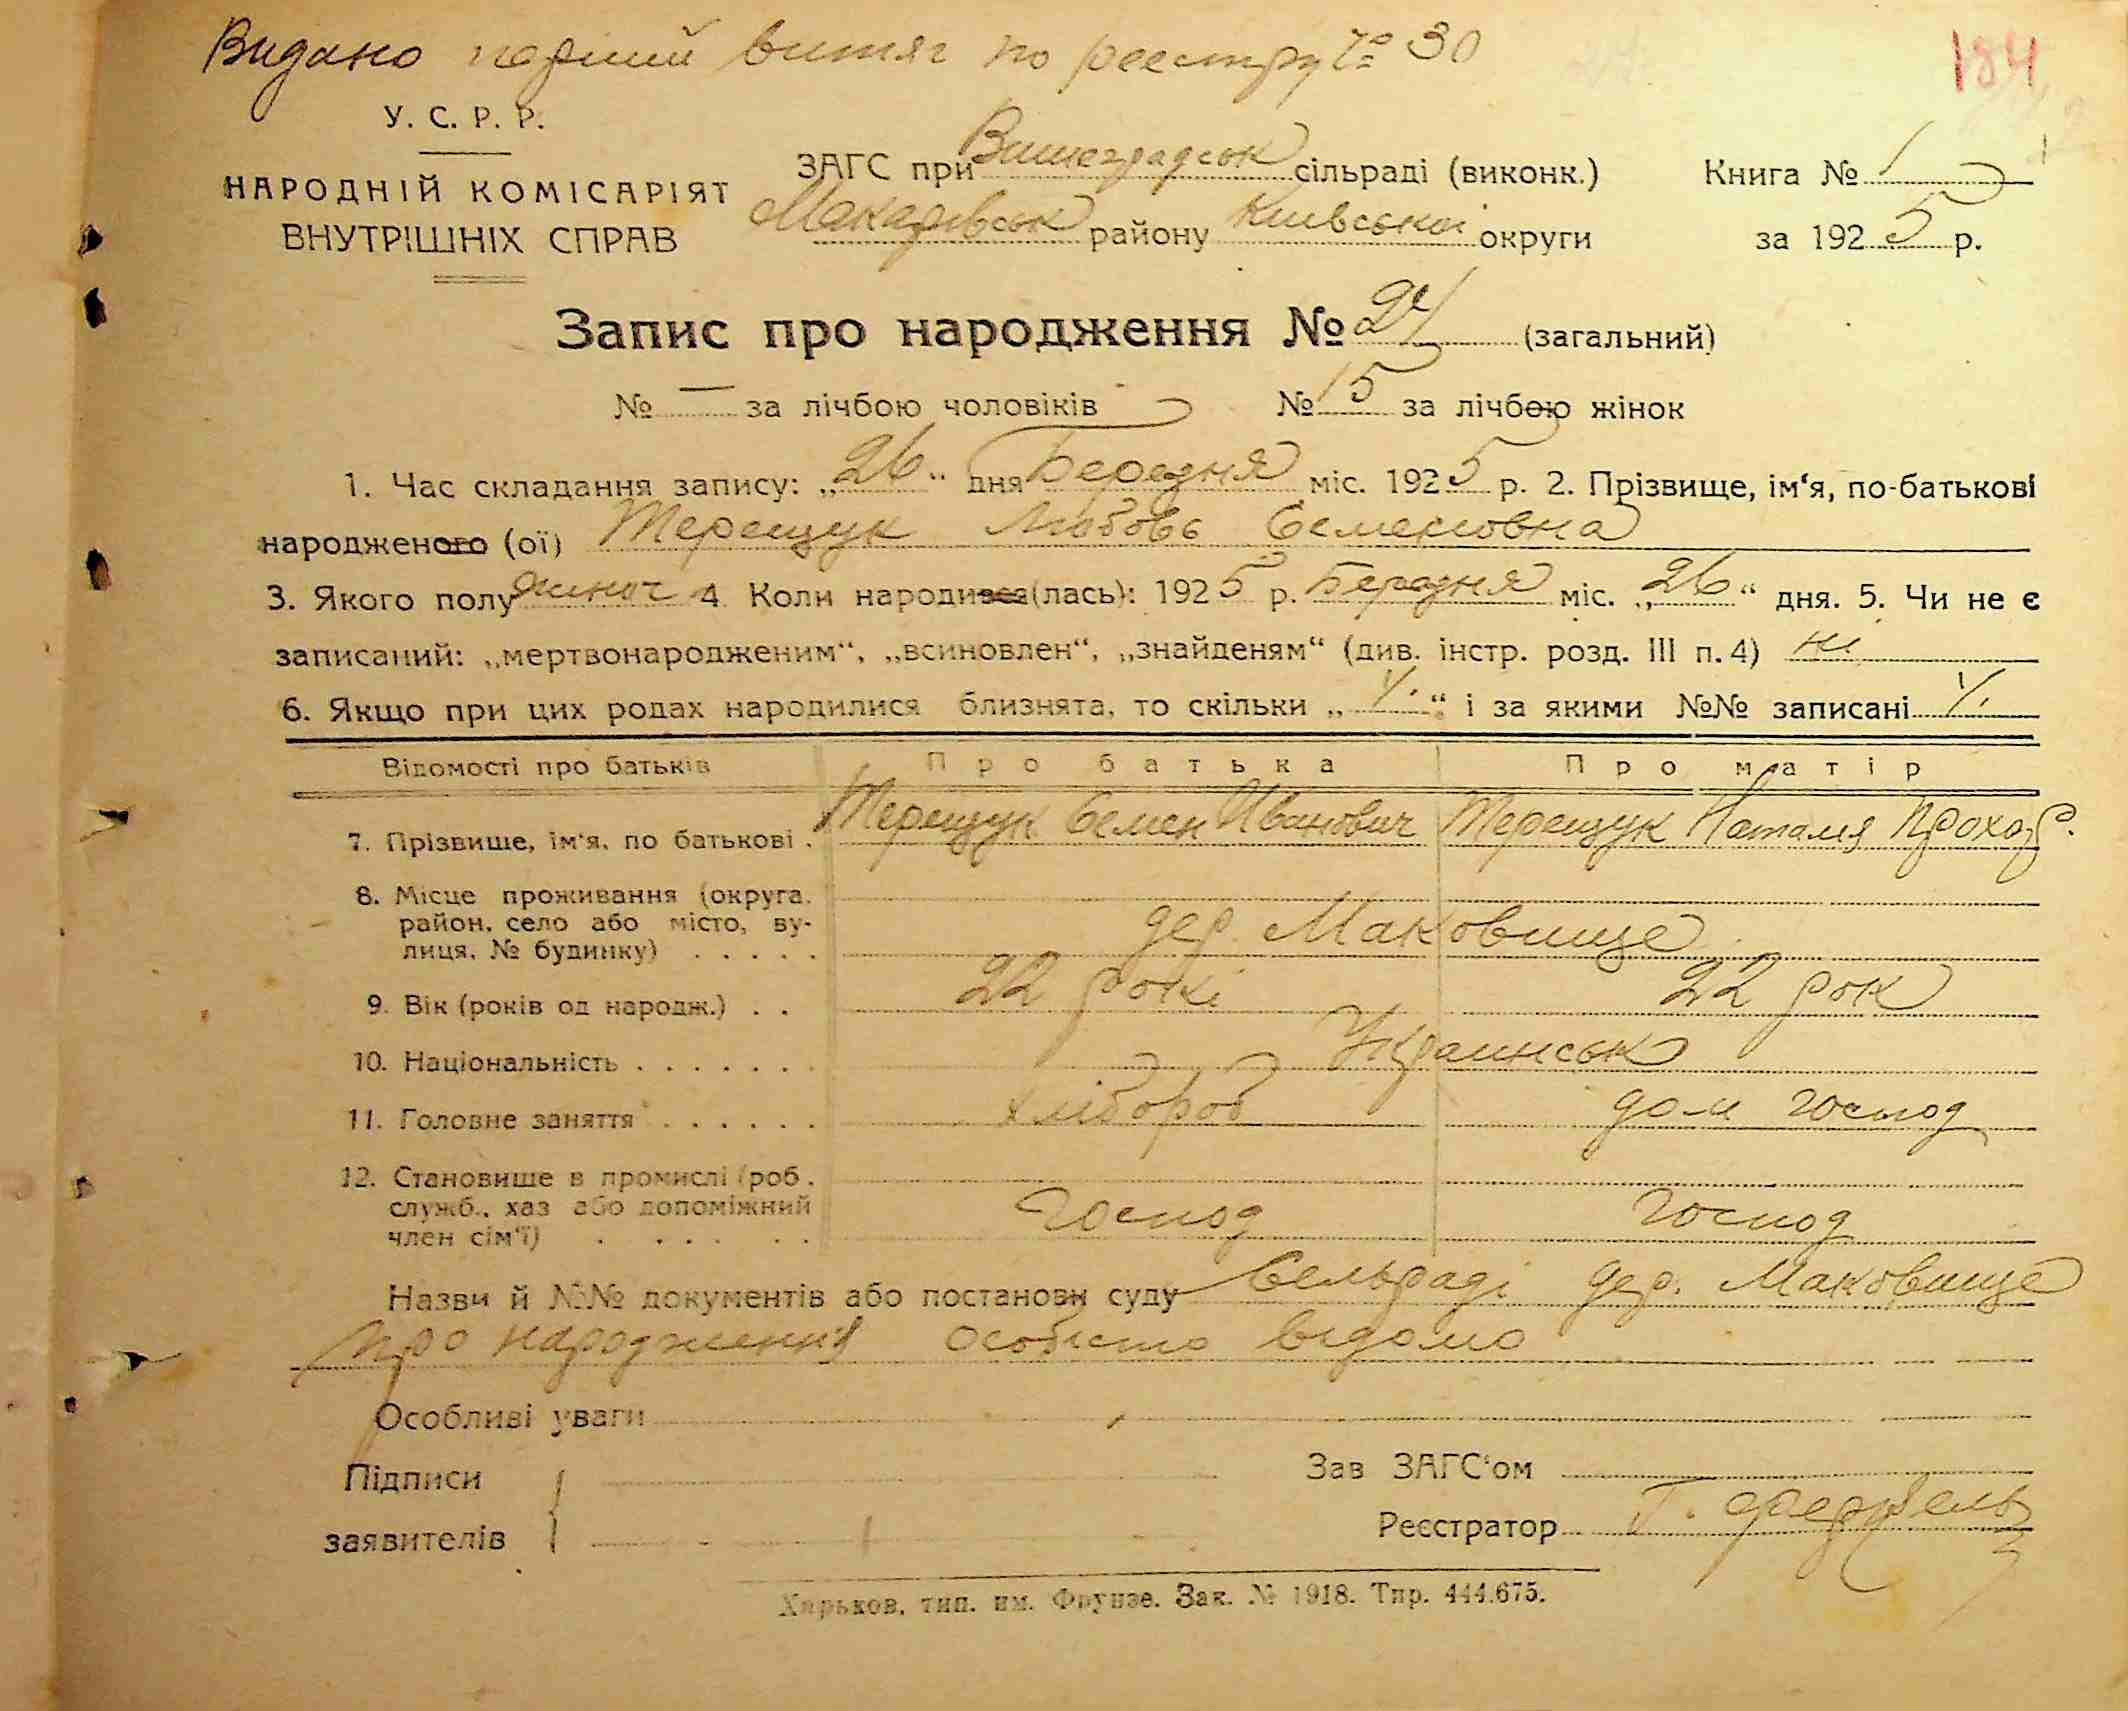 Видано перший витяг по реестру № 30
184
У. С. Р. Р.
НАРОДНІЙ КОМІСАРІЯТ
ВНУТРІШНІХ СПРАВ
ЗАГС при Вишеградськ сільраді (виконк.)
Макарівськ району Київської округи
Книга № 1
за 1925 р.
Запис про народження № 24 (загальний)
№ — за лічбою чоловіків № 15 за лічбою жінок
1. Час складання запису: „26“ дня Березня міс. 1925 р. 2. Прізвище, ім‘я, по-батькові
народженого (ої) Терещук Любовь Семеновна
3. Якого полу жиноч 4. Коли народився(лась): 1925 р. Березня міс. „26“ дня. 5. Чи не є
записаний: „мертвонародженим“, „всиновлен“, „знайденям“ (див. інстр. розд. III п. 4) ні
6. Якщо при цих родах народилися близнята, то скільки „ “ і за якими №№ записані
Відомості про батьків Про батька Про матір
7. Прізвище, ім‘я, по батькові . Терещук Семен Иванович Терещук Наталя Прохор.
8. Місце проживання (округа,
район, село або місто, ву-
лиця, № будинку) . . . . . дер. Маковище
9. Вік (років од народж.) . . 22 рокі 22 рок
10. Національність . . . . . . . Украинськ
11. Головне заняття . . . . . . хлібороб дом господ
12. Становище в промислі (роб.
служб., хаз або допоміжний
член сім‘ї) . . . . . . Господ господ
Назви й №№ документів або постанови суду Сельраді дер. Маковище
про народження особисто відомо
Особливі уваги
Підписи
заявителів
Зав ЗАГС‘ом
Реєстратор
Харьков, тип. им. Фрунзе. Зак. № 1918. Тир. 444.675.